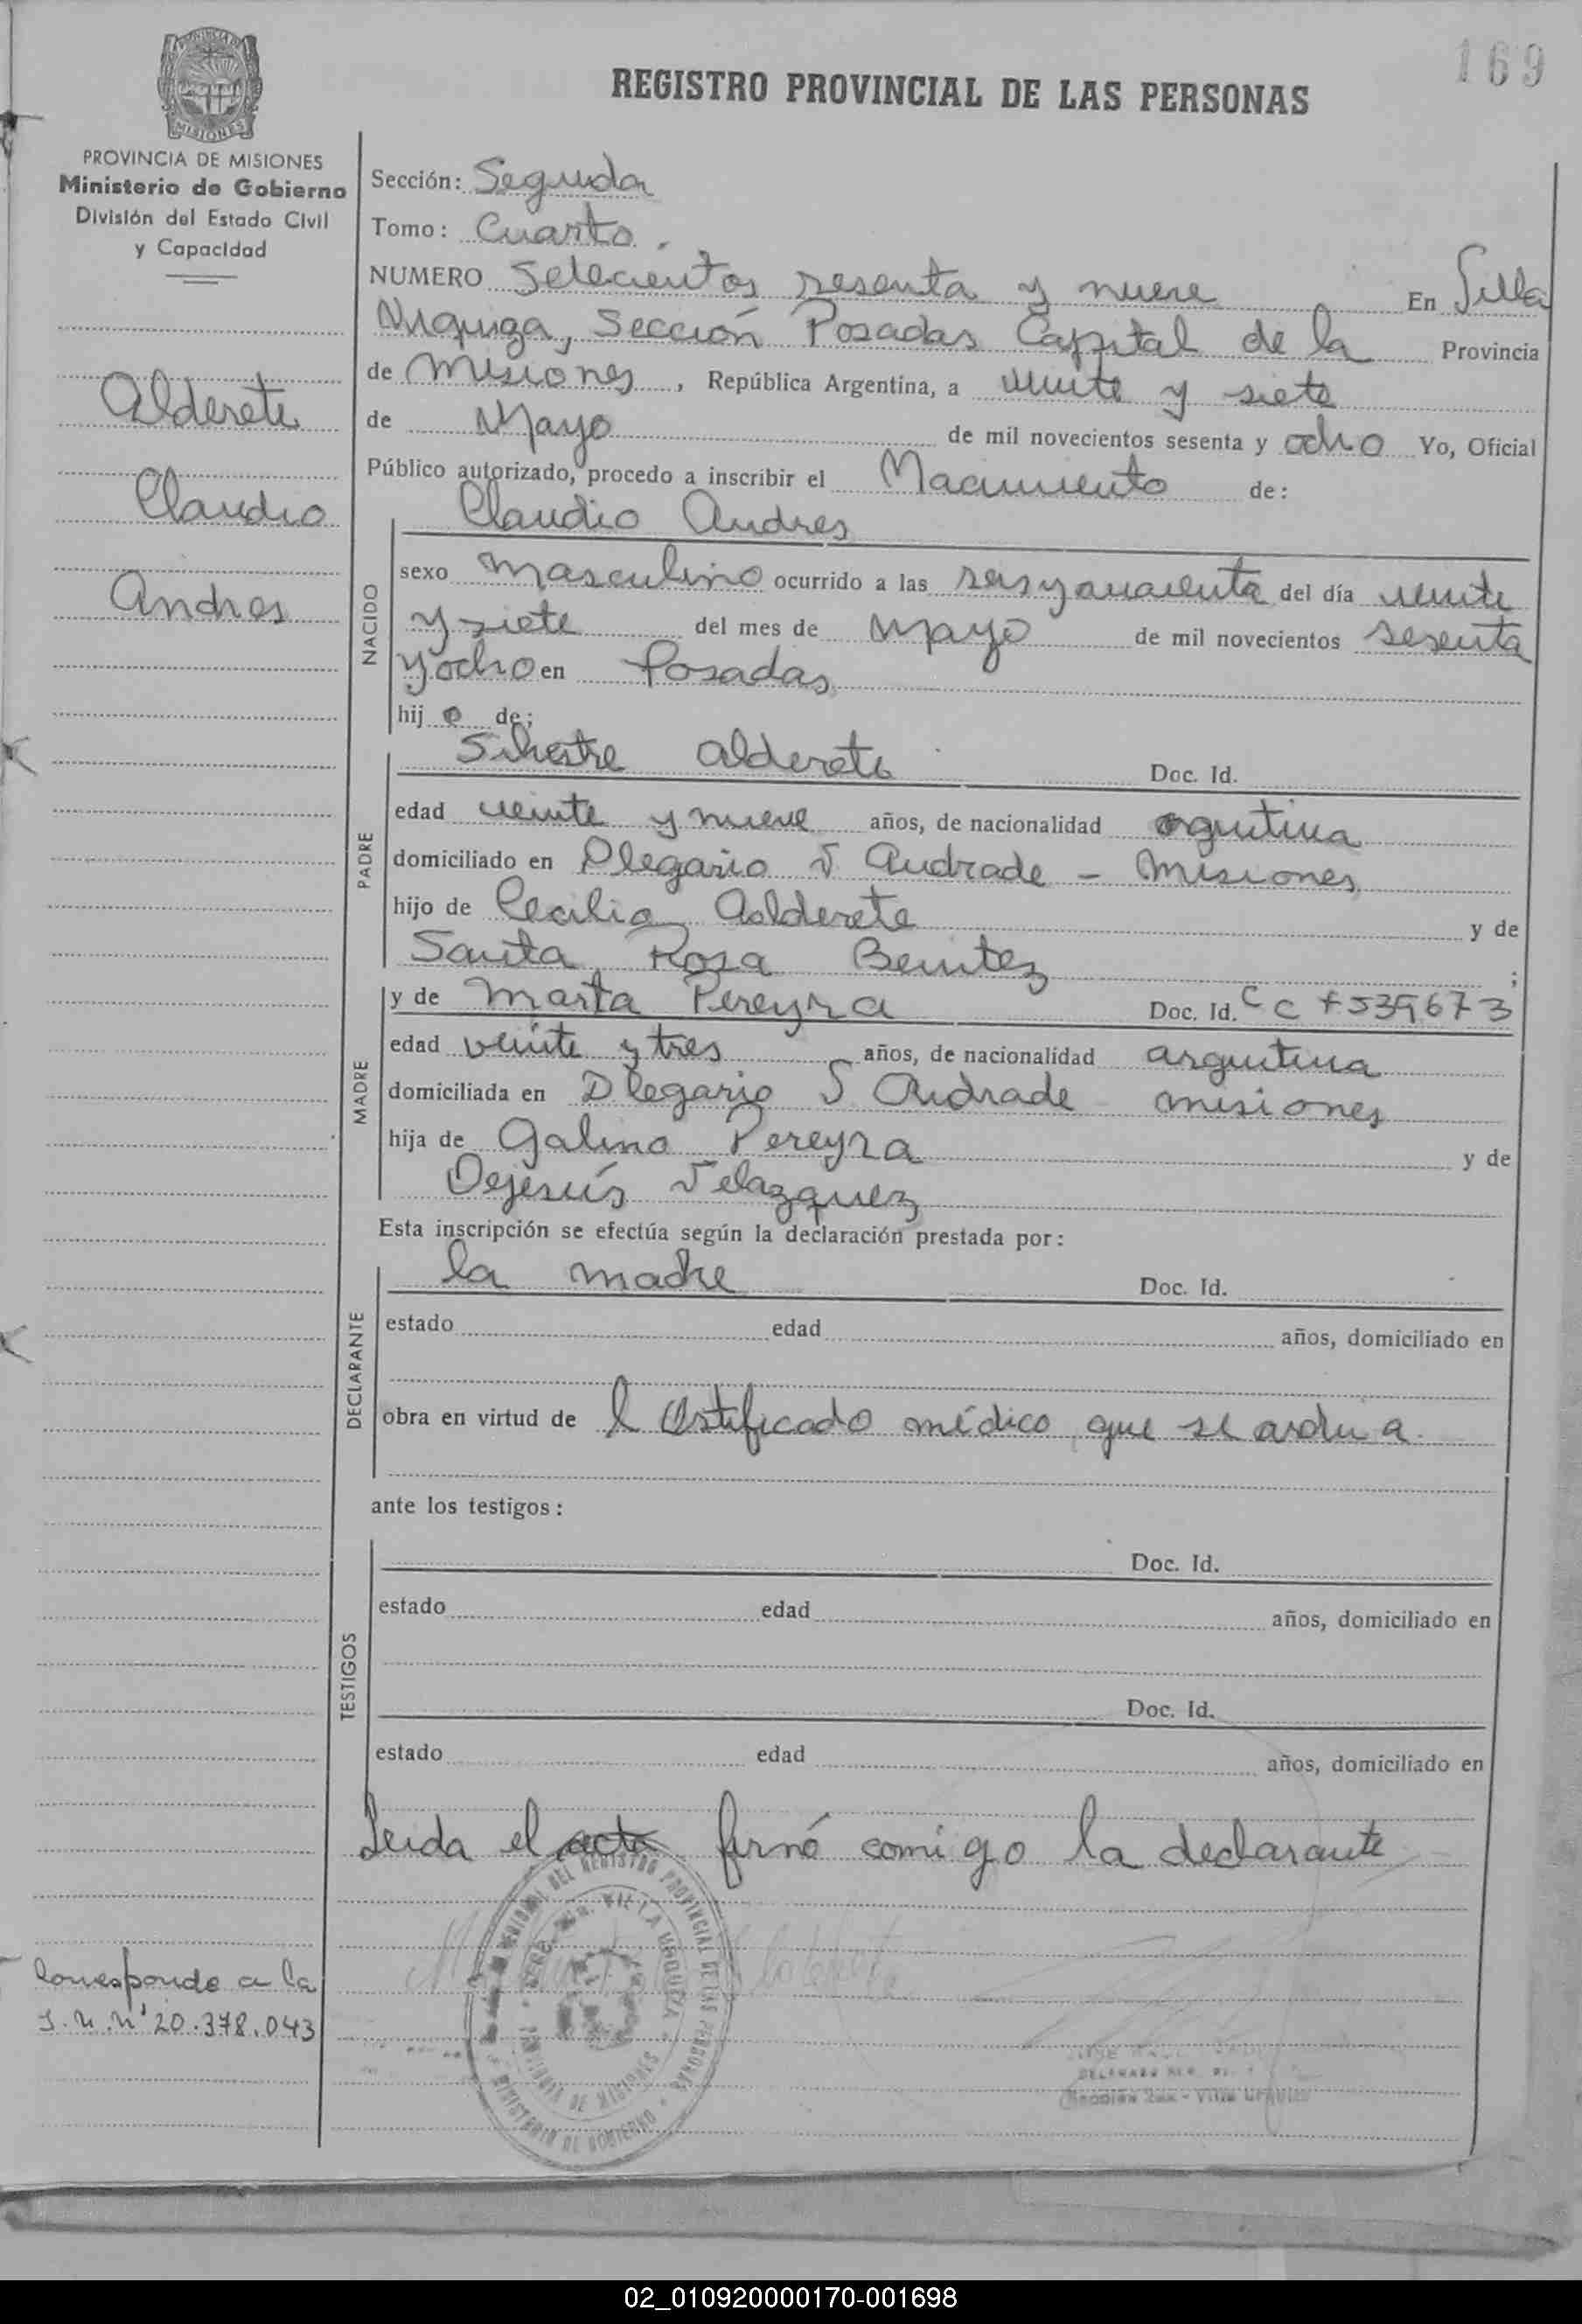 169
REGISTRO PROVINCIAL DE LAS PERSONAS
PROVINCIA DE MISIONES
Ministerio de Gobierno
División del Estado Civil
y Capacidad
Alderete
Claudio
Andres
Sección: Segunda
Tomo: Cuarto.
NUMERO Setecientos sesenta y nueve En Villa
Urquiza, Sección Posadas Capital de la Provincia
de Misiones, República Argentina, a veinte y siete
de Mayo de mil novecientos sesenta y ocho Yo, Oficial
Público autorizado, procedo a inscribir el Nacimiento de:
NACIDO
Claudio Andres
sexo masculino ocurrido a las seis y cuarenta del día veinte
y siete del mes de Mayo de mil novecientos sesenta
y ocho en Posadas
hijo de;
PADRE
Silvestre Alderete Doc. Id.
edad veinte y nueve años, de nacionalidad argentina
domiciliado en Olegario V Andrade - Misiones
hijo de Cecilio Alderete y de
Santa Rosa Benitez ;
MADRE
y de Marta Pereyra Doc. Id. CC 7539673
edad veinte y tres años, de nacionalidad argentina
domiciliada en Olegario V Andrade misiones
hija de Galino Pereyra y de
Dejesús Velazquez
Esta inscripción se efectúa según la declaración prestada por:
DECLARANTE
la madre Doc. Id.
estado edad años, domiciliado en
obra en virtud de l Certificado médico que se archiva
ante los testigos:
TESTIGOS
Doc. Id.
estado edad años, domiciliado en
Doc. Id.
estado edad años, domiciliado en
Leida el acta firmó comigo la declarante
Corresponde a la
I. N. Nº 20.378.043
REGISTRO PROVINCIAL DE LAS PERSONAS
VILLA URQUIZA
PROVINCIA DE MISIONES
MINISTERIO DE GOBIERNO
02_010920000170-001698